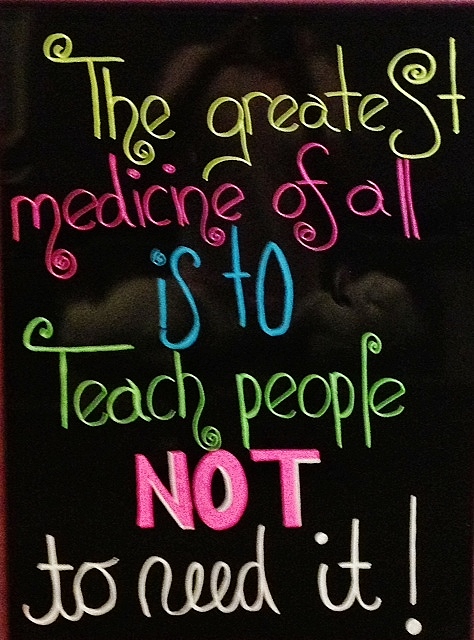 The greatest
medicine of all
is to
Teach people
NOT
to need it!